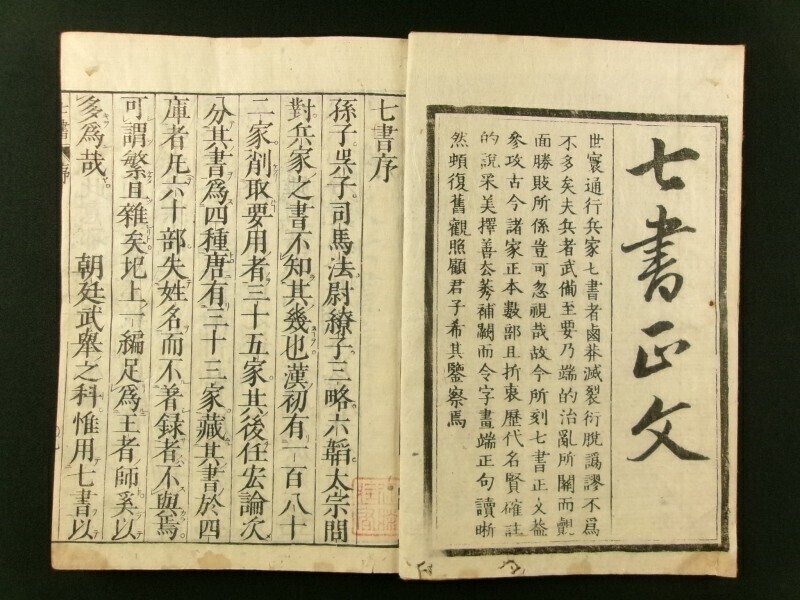 七書正文
世寰通行兵家七書者鹵莽滅裂衍脫譌謬不爲
不多矣夫兵者武備至要乃端的治亂所關而
面勝敗所係豈可忽視哉故今所刻七書正文
參攷古今諸家正本數部且折衷歷代名賢確註
的說采美擇善去莠補闕而令字畫端正句讀晰
然頓復舊觀照顧君子希其鑒察焉
七書序
孫子吳子司馬法尉繚子三略六韜太宗問
對兵家之書不知其幾也漢初有一百八十
二家削取要用者三十五家其後任宏論次
分其書爲四種唐有三十三家藏其書於四
庫者凡六十部失姓名而不著録者不與焉
可謂繁且雜矣圯上一編足爲王者師奚以
多爲哉 朝廷武舉之科惟用七書以
七書 序